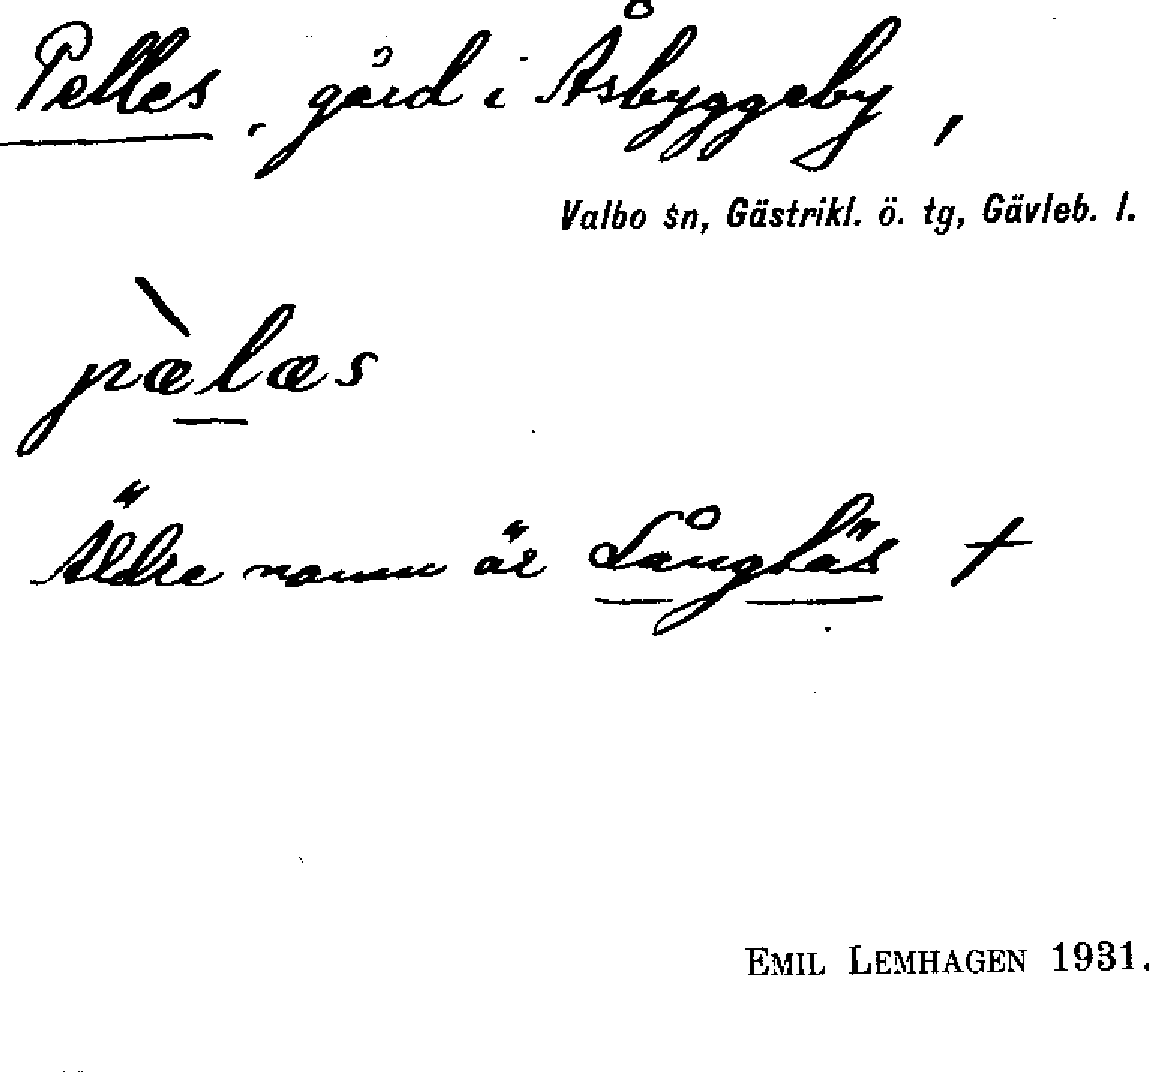 Pelles, gård i Åsbyggeby,
Valbo sn, Gästrikl. ö. tg, Gävleb. l.
pæ̀læs
Äldre namn är Långläs †
EMIL LEMHAGEN 1931.